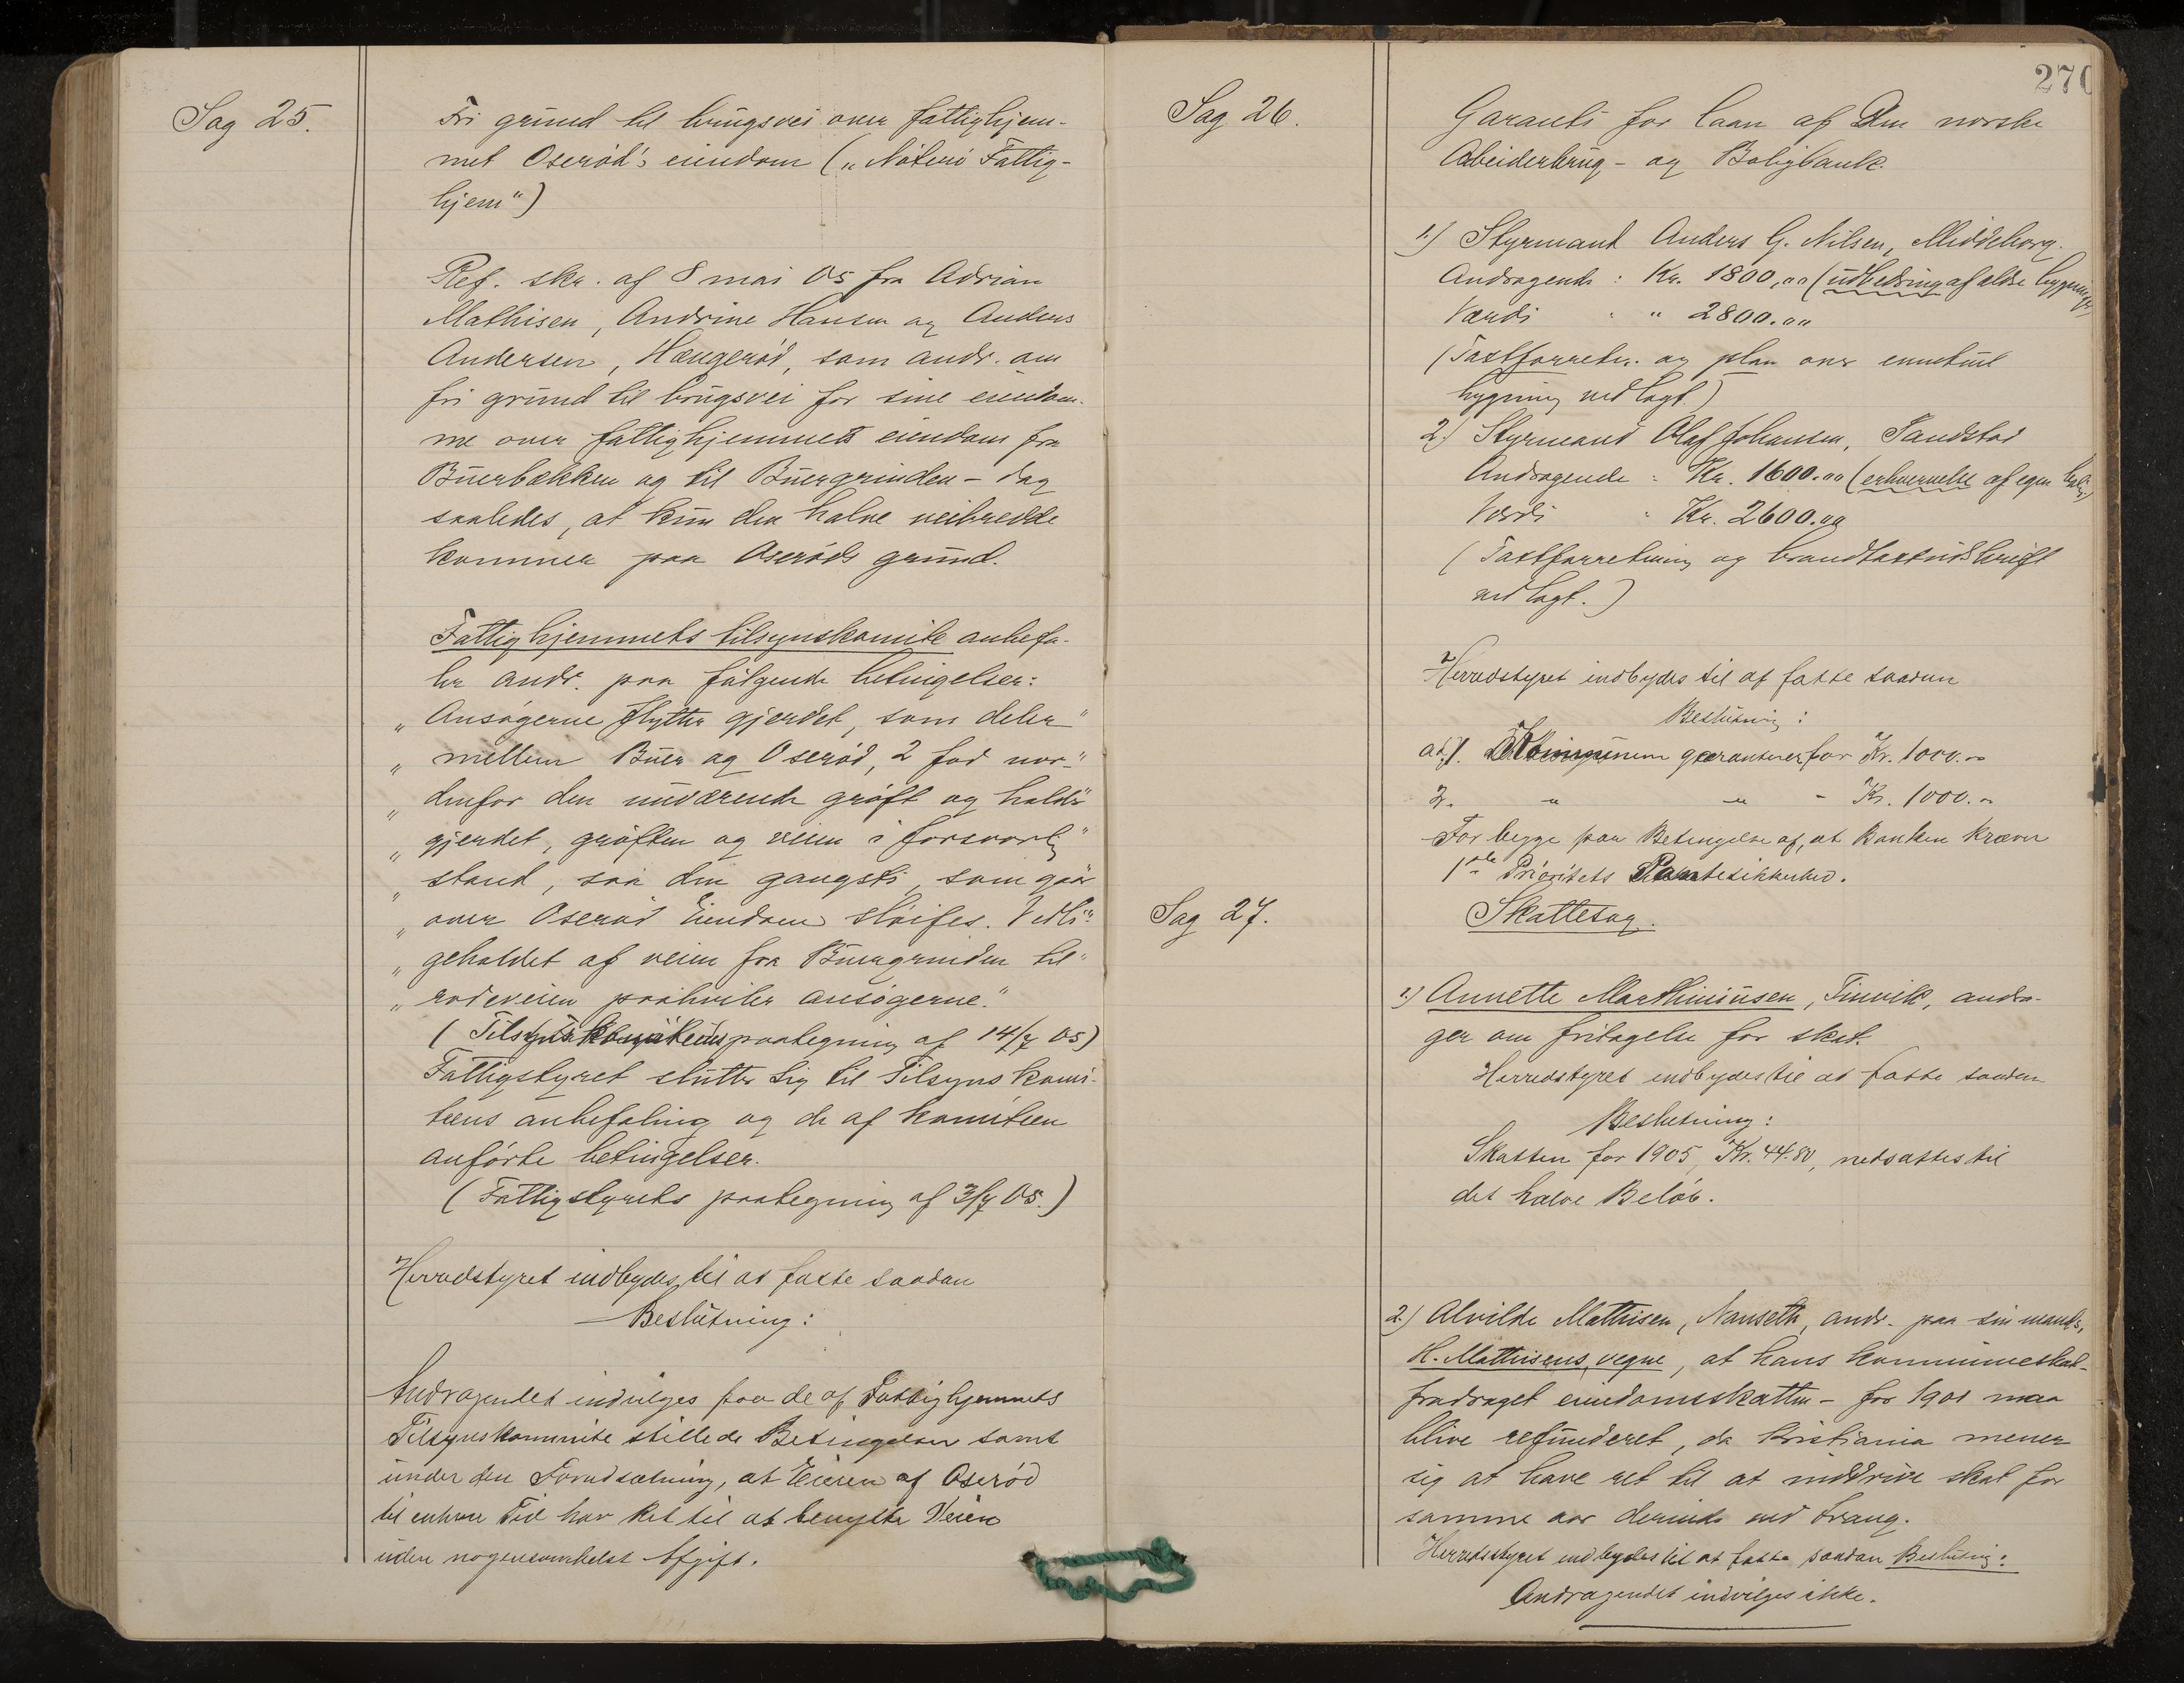 Sag 25.
Fri grund til brugsvei over fattighjem-
met Oserød's eiendom („Nøterø Fattig-
hjem“)
Ref. skr. af 8 mai 05 fra Adrian
Mathisen, Andrine Hansen og Anders
Andersen, Haugerød, som andr. om
fri grund til brugsvei for sine eiendom-
me over fattighjemmets eiendom fra
Buerbækken og til Buergrinden – dog
saaledes, at kun den halve veibredde
kommer paa Oserøds grund.
Fattighjemmets tilsynskomite anbefa-
ler andr. paa følgende betingelser:
„ Ansøgerne flytter gjerdet, som deler “
„ mellem Buer og Oserød, 2 fod nor- “
„ denfor den nuværende grøft og holder “
„ gjerdet, grøften og veien i forsvarlig “
„ stand, saa den gangsti, som gaar
„ over Oserød Eiendom sløifes. Vedli- “
„ geholdet af veien fra Buergrinden til “
„ rodeveien paahviler ansøgerne.“
( Tilsynskomiteens paategning af 14/7 05)
Fattigstyret slutter sig til Tilsynskomi-
teens anbefaling og de af komiteen
anførte betingelser.
(Fattigstyrets paategning af 3/7 05.)
Herredstyret indbydes til at fatte saadan
Beslutning:
Andragendet indvilges paa de af Fattighjemmets
Tilsynskommite stillede Betingelser samt
under den Forudsætning, at Eieren af Oserød
til enhver Tid har Ret til at benytte Veien
uden nogensomhelst Afgift.
270
Sag 26.
Garanti for laan af Den norske
Arbeiderbrug- og Boligbank.
1.) Styrmand Anders G. Nilsen, Middelborg.
Andragende : Kr. 1800,00 (udbedring af ældre bygninger)
Værdi : „ 2800.00
(Taxtforretn. og plan over eventuel
bygning vedlagt)
2.) Styrmand Olaf Johansen, Sandstad
Andragende : Kr. 1600.00 (erhvervelse af egen bolig)
Værdi : Kr. 2600.00
( Taxtforretning og brandtaxtudskrift
vedlagt.)
Herredstyret indbydes til at fatte saadan
Beslutning:
at 1. Kommunen garanterer for Kr. 1000.00
2. „ „ - Kr. 1000.00
For begge paa Betingelse af, at Banken kræver
1ste Prioritets Pantesikkerhed.
Sag 27.
Skattesag.
1.) Annette Marthiniusen, Tinvik, andra-
ger om fritagelse for skat.
Herredstyret indbydes til at fatte saadan
Beslutning:
Skatten for 1905, Kr. 44.80, nedsættes til
det halve Beløb.
2.) Alvilde Mathisen, Nanseth, andr. paa sin mands,
H. Mathisens, vegne, at hans kommuneskat –
fradraget eiendomsskatten – for 1901 maa
blive refunderet, da Kristiania mener
sig at have ret til at inddrive skat for
samme aar derinde ved tvang.
Herredsstyret indbydes til at fatte saadan Beslutning:
Andragendet indvilges ikke.